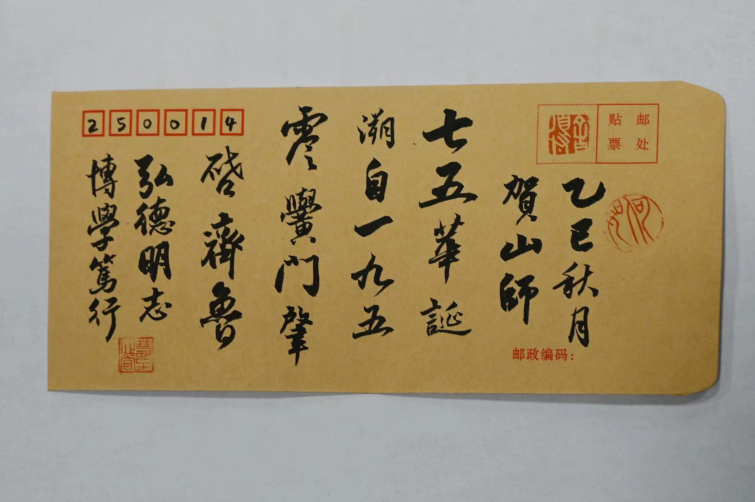 乙巳秋月
賀山師
七五華誕
溯自一九五
零黌門肇
啓齊魯
弘德明志
博學篤行
250014
贴邮
票处
邮政编码：